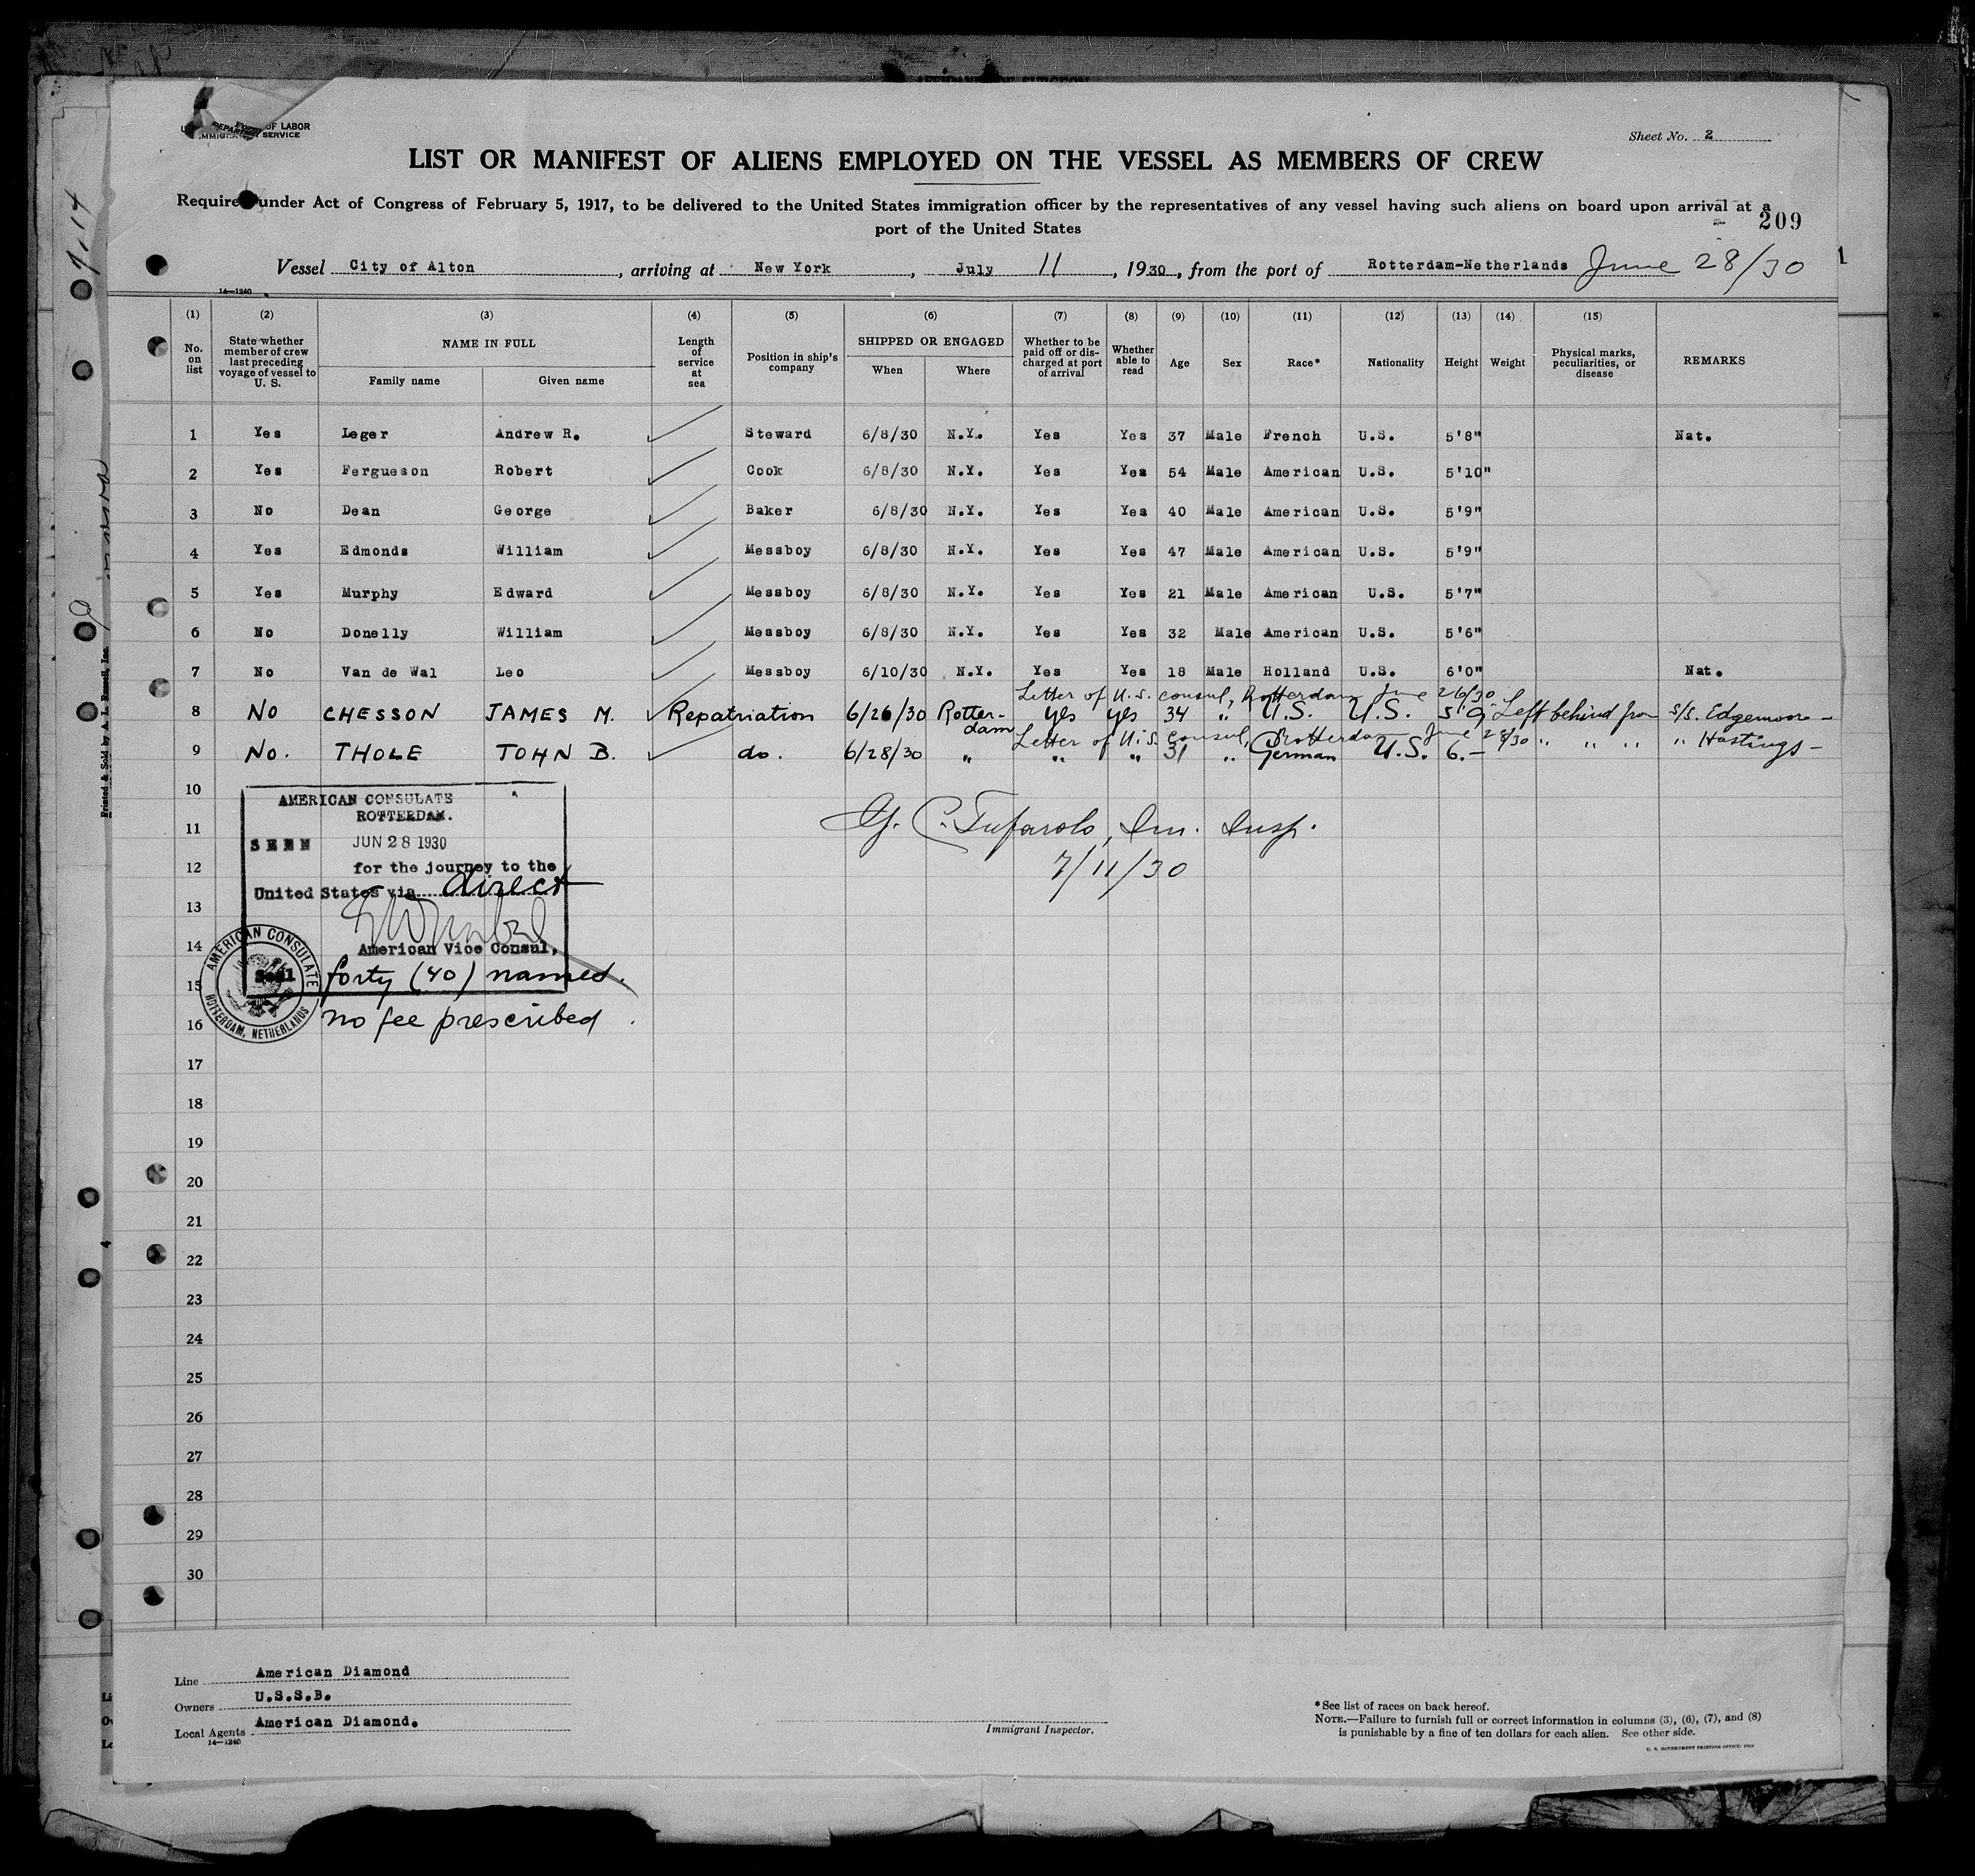 OF LABOR
SERVICE
Sheet No. 2
LIST OR MANIFEST OF ALIENS EMPLOYED ON THE VESSEL AS MEMBERS OF CREW
Require under Act of Congress of February 5, 1917, to be delivered to the United States immigration officer by the representatives of any vessel having such aliens on board upon arrival at a
port of the United States
209
Vessel City of Alton, arriving at New York, July 11, 1930, from the port of Rotterdam-Netherlands June 28/30
14—1240
(1) (2) (3) (4) (5) (6) (7) (8) (9) (10) (11) (12) (13) (14) (15)
No. on list State whether member of crew last preceding voyage of vessel to U. S. NAME IN FULL Family name Given name Length of service at sea Position in ship's company SHIPPED OR ENGAGED When Where Whether to be paid off or discharged at port of arrival Whether able to read Age Sex Race* Nationality Height Weight Physical marks, peculiarities, or disease REMARKS
1 Yes Leger Andrew R. Steward 6/8/30 N.Y. Yes Yes 37 Male French U.S. 5'8" Nat.
2 Yes Fergueson Robert Cook 6/8/30 N.Y. Yes Yes 54 Male American U.S. 5'10"
3 No Dean George Baker 6/8/30 N.Y. Yes Yes 40 Male American U.S. 5'9"
4 Yes Edmonds William Messboy 6/8/30 N.Y. Yes Yes 47 Male American U.S. 5'9"
5 Yes Murphy Edward Messboy 6/8/30 N.Y. Yes Yes 21 Male American U.S. 5'7"
6 No Donelly William Messboy 6/8/30 N.Y. Yes Yes 32 Male American U.S. 5'6"
7 No Van de Wal Leo Messboy 6/10/30 N.Y. Yes Yes 18 Male Holland U.S. 6'0" Nat.
Letter of U.S. consul, Rotterdam June 26/30
8 NO CHESSON JAMES M. Repatriation 6/26/30 Rotterdam yes yes 34 " U.S. U.S. 5'9" Left behind from S/S. Edgemoore -
Letter of U.S. consul, Rotterdam June 28/30
9 NO. THOLE JOHN B. do. 6/28/30 " " " 31 " German U.S. 6.- " " " " Hastings -
10
11
12
13
14
15
16
17
18
19
20
21
22
23
24
25
26
27
28
29
30
AMERICAN CONSULATE
ROTTERDAM.
SEEN JUN 28 1930
for the journey to the
United States via direct
American Vice Consul,
Seal forty (40) names.
no fee prescribed.
AMERICAN CONSULATE
ROTTERDAM, NETHERLANDS
Im. Insp.
7/11/30
Line American Diamond
Owners U.S.S.B.
Local Agents American Diamond.
14—1240
Immigrant Inspector.
*See list of races on back hereof.
NOTE.—Failure to furnish full or correct information in columns (3), (6), (7), and (8)
is punishable by a fine of ten dollars for each alien. See other side.
Printed & Sold by A. L. Russell, Inc.